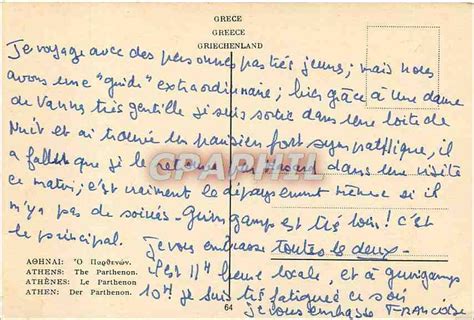 GRECE
GREECE
GRIECHENLAND
Je voyage avec des personnes pas très jeunes; mais nous
avons une "guide" extraordinaire; hier grâce à une dame
de Vannes très gentille je suis sortie dans une boite de
Nuit et ai trouvé un parisien fort sympathique, il
a fallu que je le dans une visite
ce matin; c'est vraiment le dépaysement même si il
n'y a pas de soirées - Guingamp est très loin! c'est
le principal. Je vous embrasse toutes les deux.
CRAPHIL
ΑΘΗΝΑΙ: Ὁ Παρθενών.
ATHENS: The Parthenon.
ATHÈNES: Le Parthenon
ATHEN: Der Parthenon.
64
Il est 11h heure locale, et à Guingamp
10h je suis très fatiguée ce soir
je vous embrasse FRANCOISE